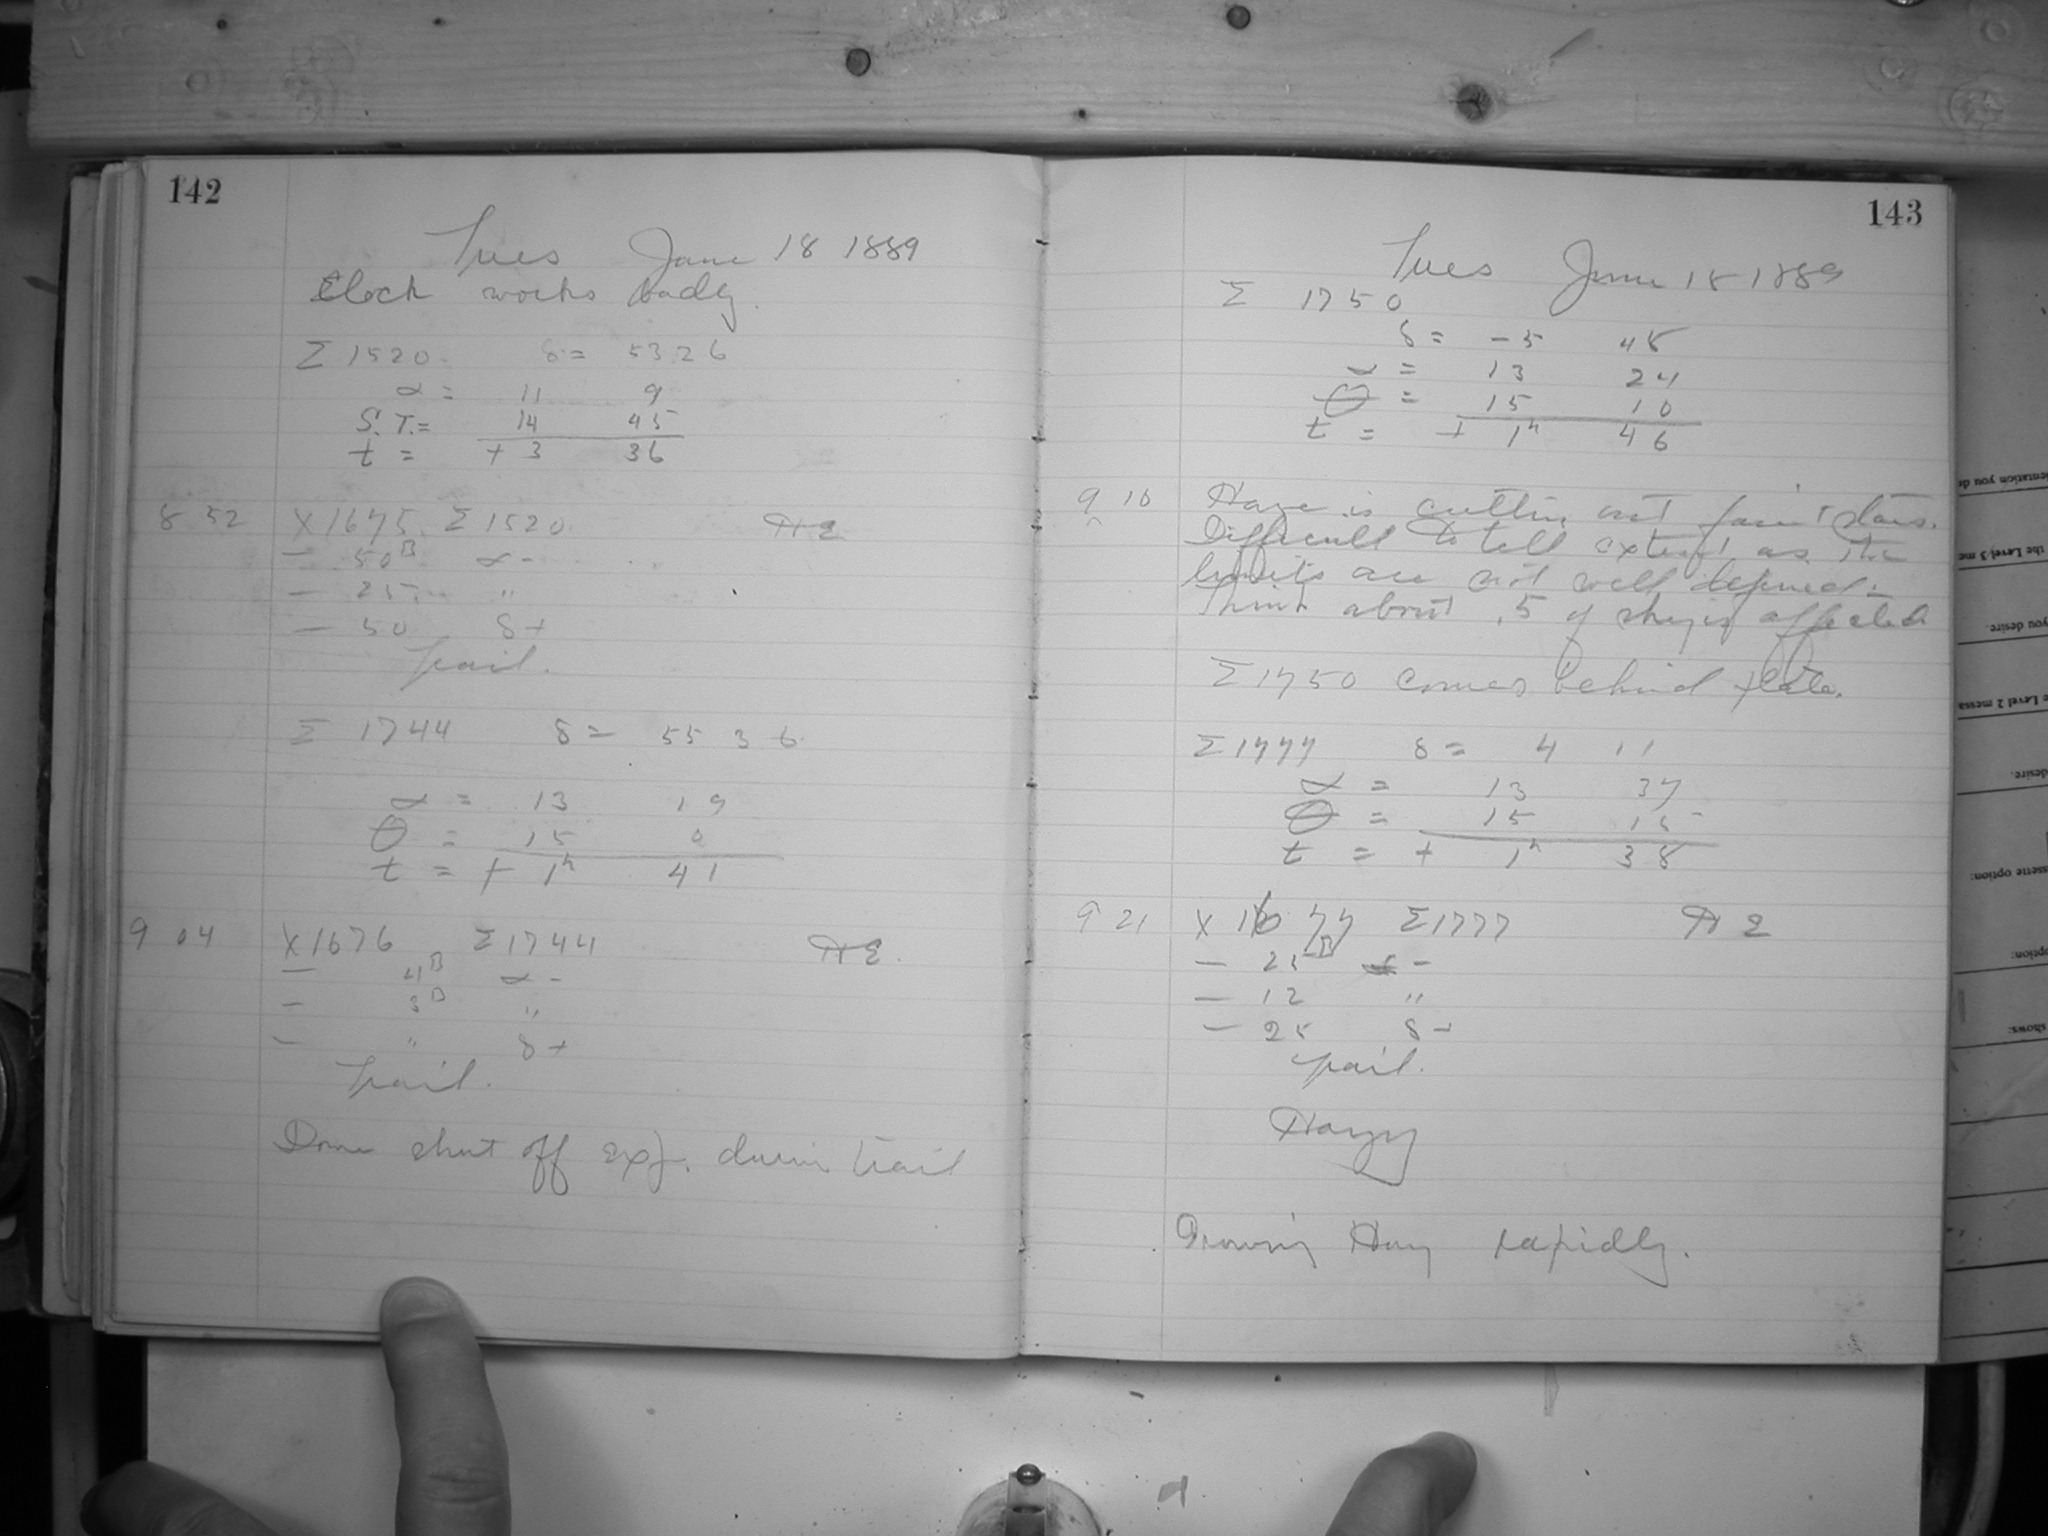 142
Tues June 18 1889
Clock works badly.
Σ 1520. δ = 53 26
α = 11 9
S.T. = 14 45
t = + 3 36
8 52 X1675. Σ1520
— 50ᴮ α -
— 25 "
— 50 δ +
Trail.
Σ 1744 δ = 55 36
α = 13 19
Θ = 15 0
t = + 1ʰ 41
9 04 X1676 Σ1744
— 4ᴮ α -
— 3ᴮ "
— " δ +
Trail.
Dome shut off exp. during trail
143
Tues June 18 1889
Σ 1750
δ = -5 48
α = 13 24
Θ = 15 10
t = + 1ʰ 46
9 10 Haze is cutting out faint stars.
Difficult to tell extent as the
limits are not well defined -
Think about .5 of sky is affected
Σ1750 comes behind plate.
Σ1777 δ = 4 11
α = 13 37
Θ = 15 15
t = + 1ʰ 38
9 21 X 1677 Σ1777
— 25ᴮ -
— 12 "
— 25 δ -
Trail.
Hazy
Growing Hazy rapidly.